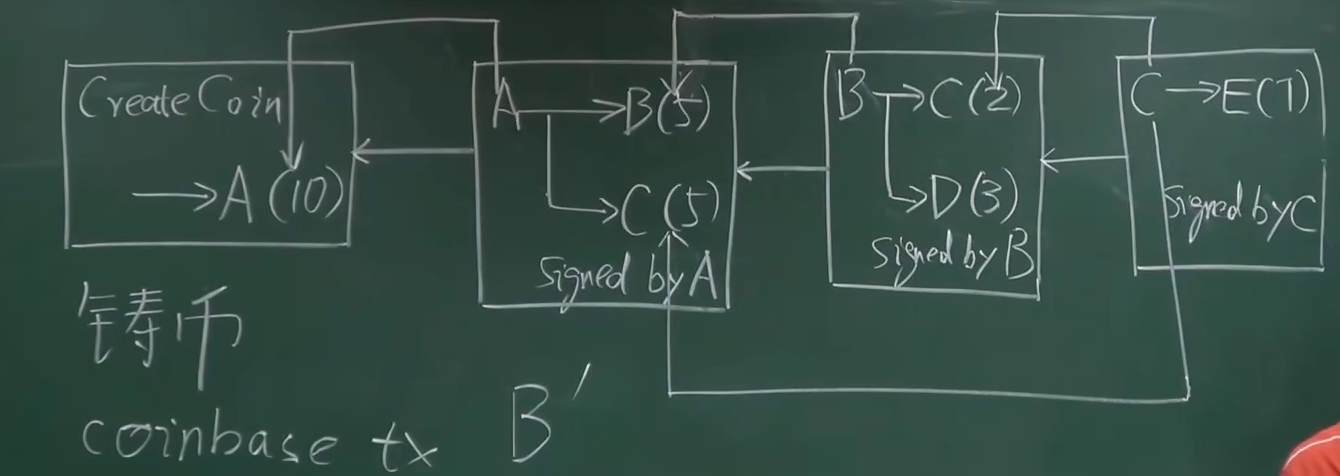 Create Coin
→ A (10)
A → B (5)
→ C (5)
signed by A
B → C (2)
→ D (3)
signed by B
C → E (7)
signed by C
铸币
coinbase tx
B′